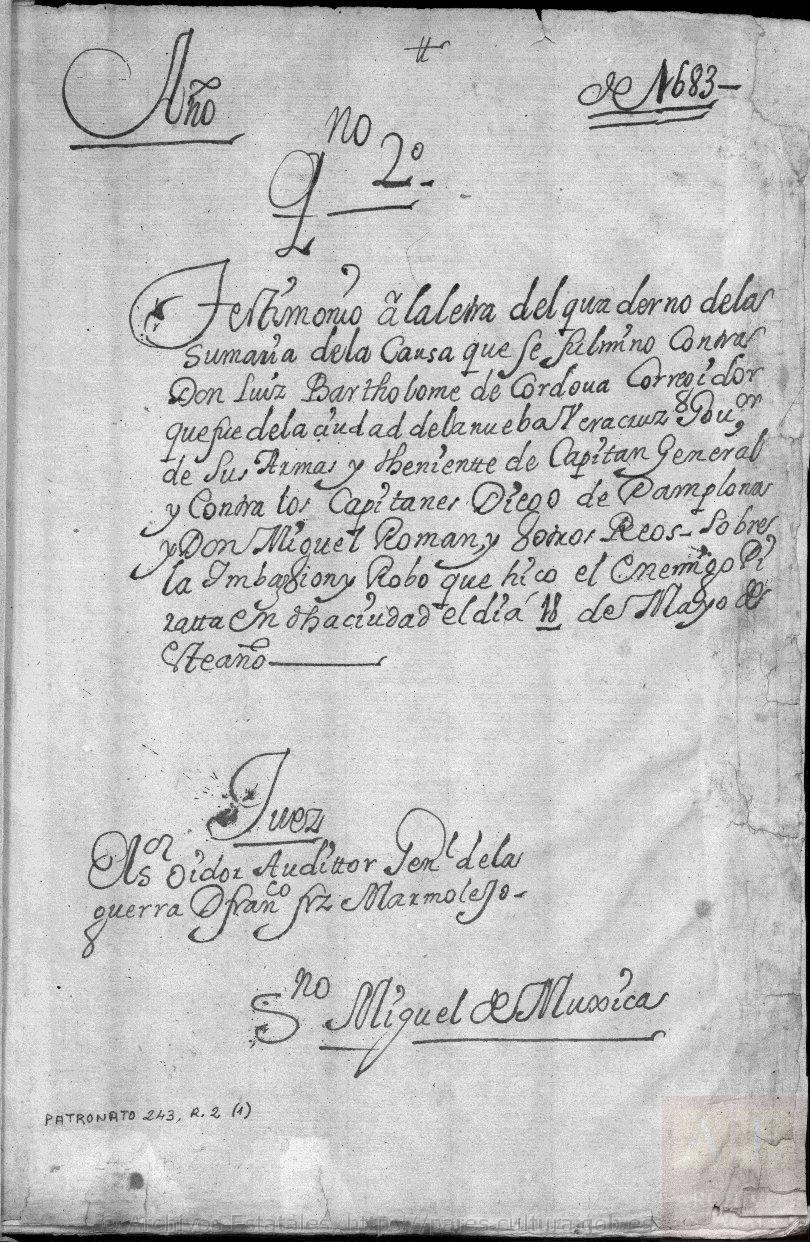 Año
de 1683
Qno 2º
Testimonio â la letra del quaderno de la
Sumaria de la Causa que se fulmino Contra
Don Luiz Bartholome de Cordoua Corregidor
que fue de la ciudad de la nueba Veracruz Gouor
de Sus Armas y theniente de Capitan General
y Contra los Capitanes Diego de Pamplona
y Don Miguel Roman, y Gotros Reos Sobre
la Imbazion y Robo que hico el Enemigo Pi
ratta en dha ciudad el dia 18 de Mayo de
este año
Juez
El Sor Oidor Audittor Genl de la
guerra D franco frz Marmolejo
Sno Miguel de Muxica
PATRONATO 243, R.2 (1)
Archivos Estatales, http://pares.cultura.gob.es